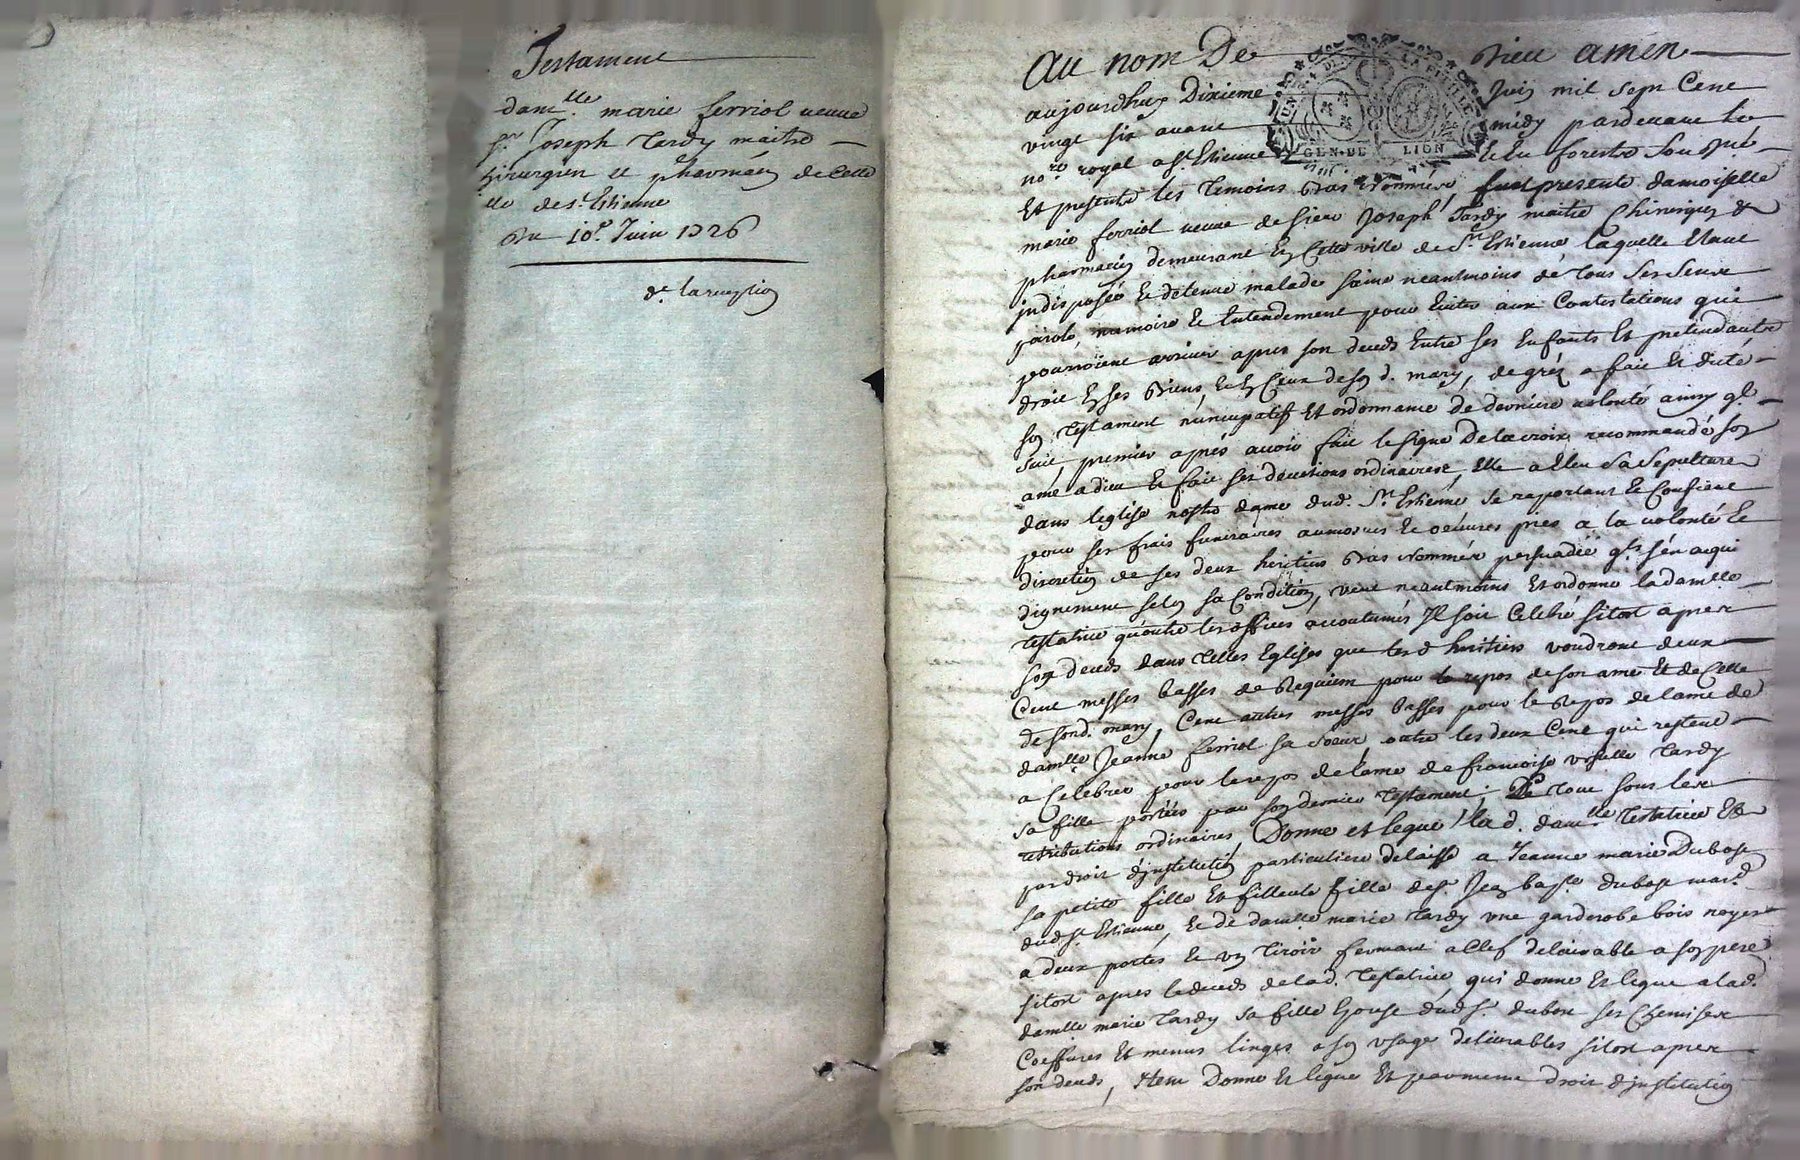 Testament
dam.lle marie ferriol veuve
Sr. Joseph Tardy maitre
chirurgien et pharmacien de cette
ville de st. Estienne
Du 10e. Juin 1726
de laregestion
Au nom De Dieu amen
aujourdhuy Dixieme Juin mil sept Cent
vingt six avant midy pardevant le
no.re royal a St. Estienne en forestz soussigné
Et presents les temoins bas nommés, fut presente damoiselle
marie ferriol veuve de sieur Joseph Tardy maitre Chirurgien &
pharmacien demeurant En Cette ville de St. Estienne laquelle Etant
jndisposée Et detenue malade saine neantmoins de tous ses sens
parole, memoire Et Entendement pour Eviter aux Contestations qui
pourroient arriver apres son deceds Entre ses Enfants Et pretendants
droit En ses Biens, Et En Ceux de son d. mary, de gré a fait Et dicté
son Testament nuncupatif Et ordonnance de derniere volonté ainsy ql.
suit, premier aprés avoir fait le signe De la croix recommandé son
ame a dieu Et fait ses devotions ordinaires, Elle a Eleu Sa Sepulture
dans leglise nostre dame dud. St. Estienne se raportant Et Confiant
pour ses frais funeraires aumosnes Et oeuvres pies a la volonté Et
discretion de ses deux heritiers bas nommés persuadée
dignement selon sa Condition, veut neantmoins Et ordonne lad. damlle
testatrice qu'outre les offices accoutumés Il soit Celebré sitost apres
son deceds dans telles Eglises que lesd. heritiers voudront deux
Cent messes basses de Requiem pour le repos de son ame Et de Celle
de sond. mary, Cent autres messes basses pour le Repos de lame de
damlle. Jeanne ferriol sa soeur, outre les deux Cent qui restent
a Celebrer pour le repos de lame de francoise Tardy
sa fille portées par son dernier Testament; Le tout sous les
retributions ordinaires, Donne et legue lad. dam.lle Testatrice Et
par droit d'jnstitution particuliere delaisse a Jeanne marie Dubost
sa petite fille Et filleule fille de sr. Jean bapte. dubost march.d
dud. St. Estienne, Et de damlle marie Tardy une garderobe bois noyer
a deux portes Et un tiroir fermant a Clef delivrable a son pere
sitost apres le deceds de lad. Testatrice, qui donne Et legue a lad.
damlle marie Tardy sa fille Epouse dud. sr. dubost ses Chemises
Coeffures Et menus linges a son usage delivrables sitost apres
son deceds, Item Donne Et legue Et par meme droit d'jnstitution
GEN. DE LION